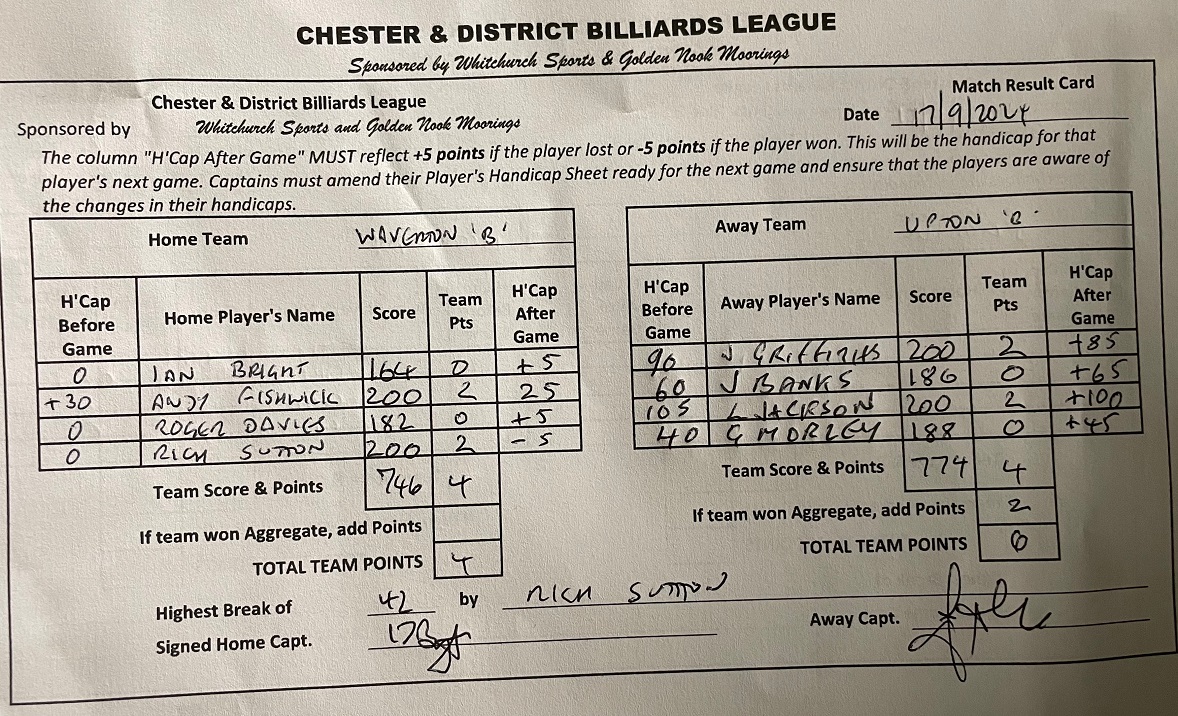 CHESTER & DISTRICT BILLIARDS LEAGUE
Sponsored by Whitchurch Sports & Golden Nook Moorings
Chester & District Billiards League
Match Result Card
Sponsored by Whitchurch Sports and Golden Nook Moorings
Date 17/9/2024
The column "H'Cap After Game" MUST reflect +5 points if the player lost or -5 points if the player won. This will be the handicap for that
player's next game. Captains must amend their Player's Handicap Sheet ready for the next game and ensure that the players are aware of
the changes in their handicaps.
Home Team WAVERTON 'B'
H'Cap Before Game Home Player's Name Score Team Pts H'Cap After Game
0 IAN BRIGHT 164 0 +5
+30 ANDY FISHWICK 200 2 25
0 ROGER DAVIES 182 0 +5
0 RICH SUTTON 200 2 -5
Team Score & Points 746 4
If team won Aggregate, add Points
TOTAL TEAM POINTS 4
Away Team UPTON 'B'
H'Cap Before Game Away Player's Name Score Team Pts H'Cap After Game
90 J GRIFFITHS 200 2 +85
60 J BANKS 186 0 +65
105 L JACKSON 200 2 +100
40 G MORLEY 188 0 +45
Team Score & Points 774 4
If team won Aggregate, add Points 2
TOTAL TEAM POINTS 6
Highest Break of 42 by RICH SUTTON
Signed Home Capt.
Away Capt.